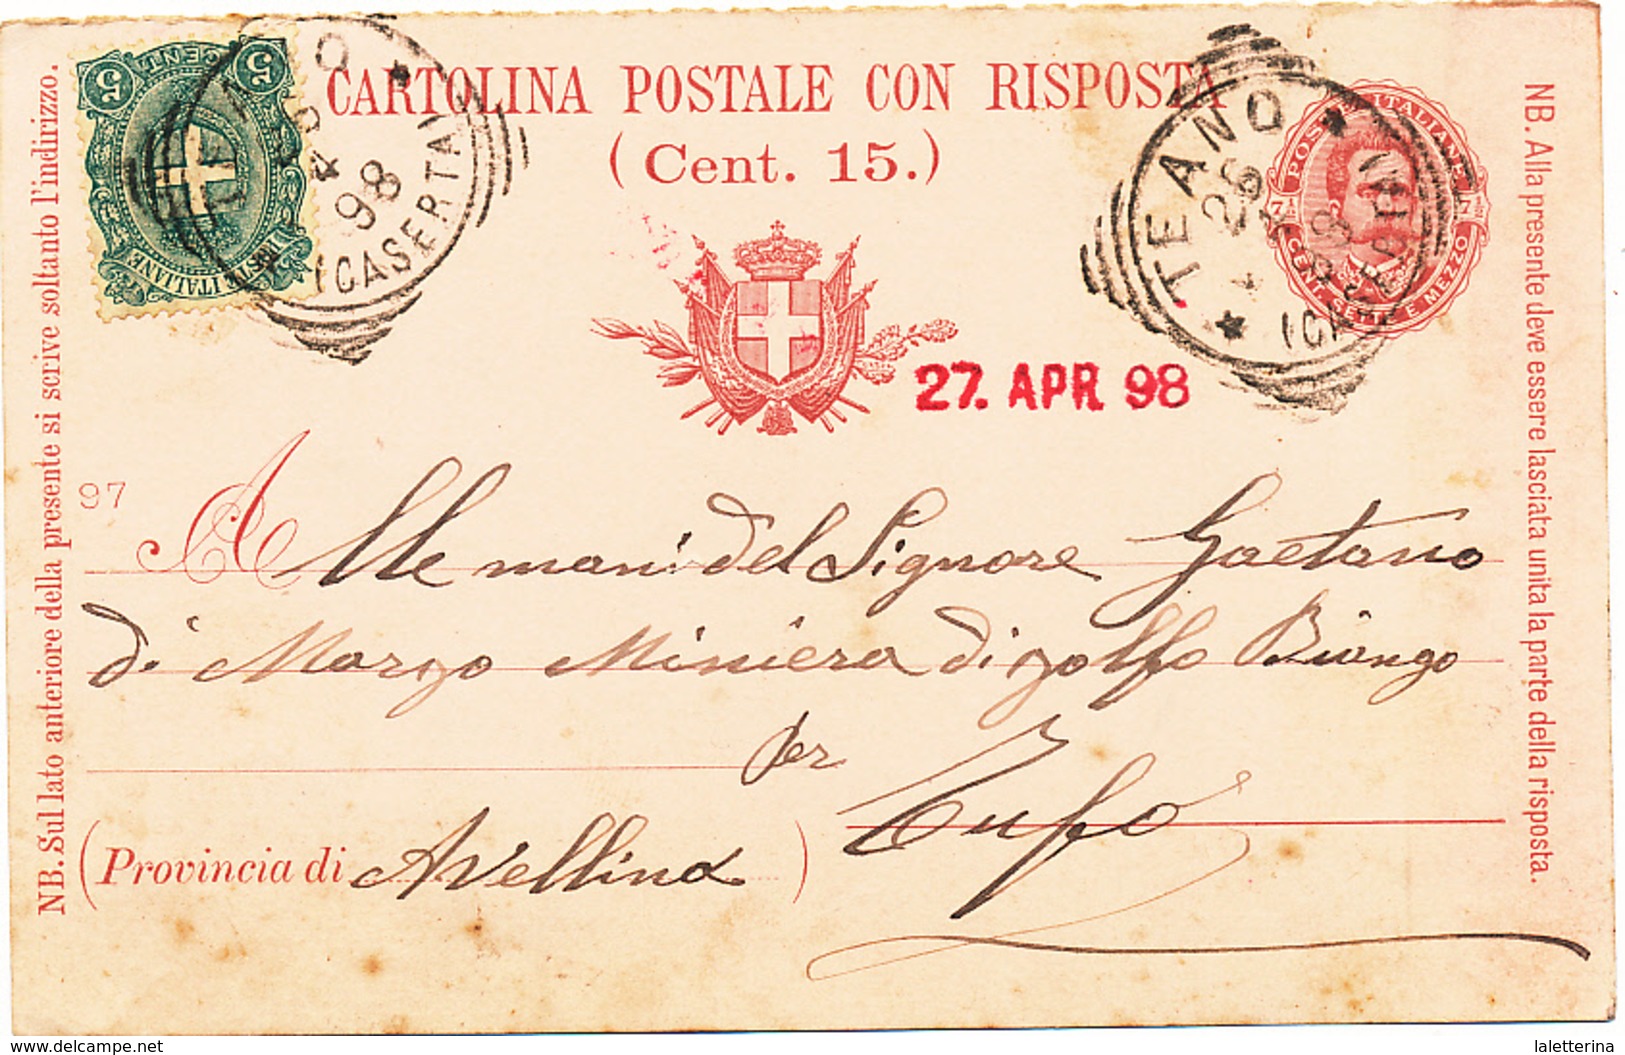 CARTOLINA POSTALE CON RISPOSTA
(Cent. 15.)
5 CENT. 5
POSTE ITALIANE
TEANO
4 98
(CASERTA)
TEANO
26
4 98
(CASERTA)
POSTE ITALIANE
CENT. SETTE E MEZZO
27. APR. 98
97
Alle mani del Signore Gaetano
di Marzo Miniera di zolfo Bivongo
per Tufo
(Provincia di Avellino)
NB. Sul lato anteriore della presente si scrive soltanto l'indirizzo.
NB. Alla presente deve essere lasciata unita la parte della risposta.
www.delcampe.net
laletterina